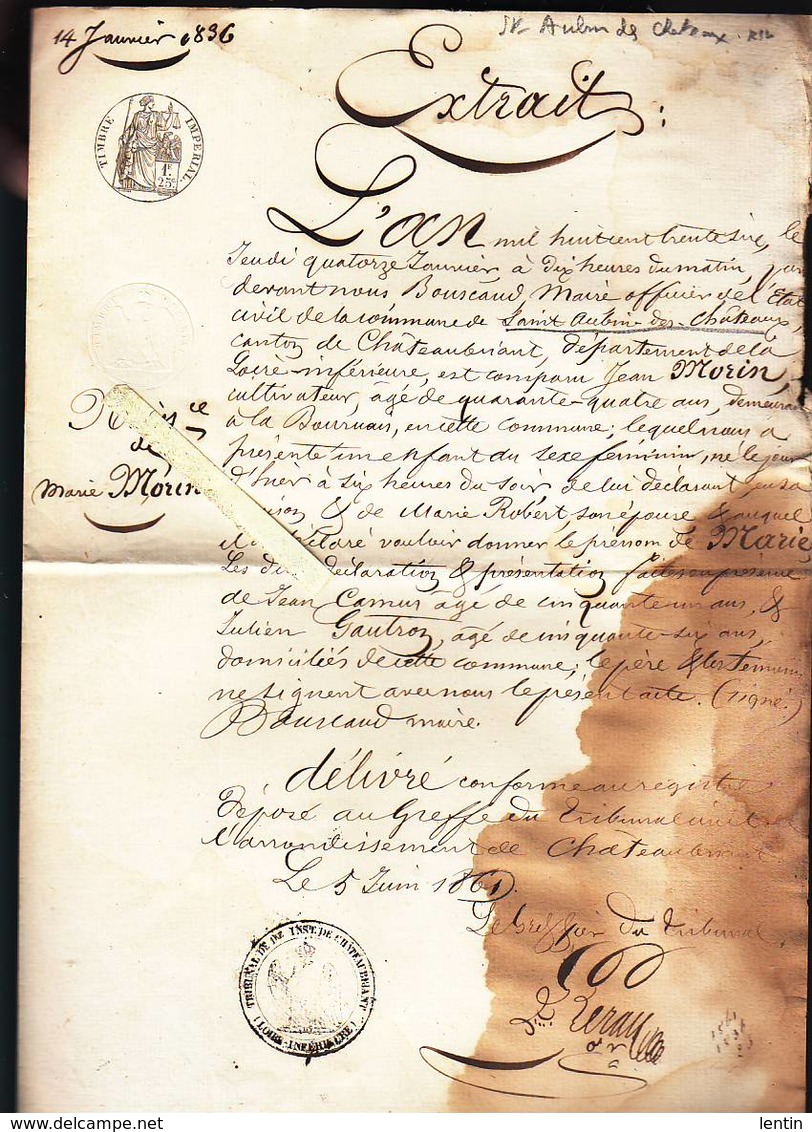 14 Janvier 1836
St Aubin des Chateaux
Extrait :
TIMBRE IMPERIAL
1F.
25c
L'an mil huit cent trente six, le
Jeudi quatorze Janvier, à dix heures du matin, par
devant nous Bouscaud, Maire officier de l'Etat
civil de la commune de Saint Aubin-des-Châteaux,
canton de Châteaubriant, département de la
Loire-inférieure, est comparu Jean Morin,
cultivateur, âgé de quarante-quatre ans, demeurant
à la Bourruais, en cette commune; lequel nous a
présenté un enfant du sexe féminin, né le jour
d'hier à six heures du soir de lui déclarant en sa
& de Marie Robert, son épouse & auquel
déclaré vouloir donner le prénom de Marie.
Les dites déclaration & présentation faites en présence
de Jean Camus âgé de cinquante un ans, &
Julien Gautron, âgé de cinquante-six ans,
domiciliés de cette commune; le père & les temoins
ne signent avec nous le présent acte. (signé)
Bouscaud maire.
de
Marie Morin
délivré conforme au registre
Déposé au Greffe du Tribunal civil de
l'arrondissement de Châteaubriant
Le 5 Juin 1861.
Le Greffier du Tribunal,
TRIBUNAL DE 1re INST. DE CHATEAUBRIANT
(LOIRE-INFERIEURE)
1861
1836
lentin